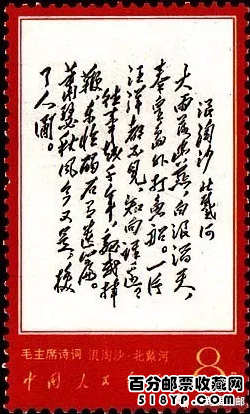 浪淘沙 北戴河
大雨落幽燕,白浪滔天,
秦皇岛外打鱼船。一片
汪洋都不见,知向谁边?
往事越千年,魏武挥
鞭,东临碣石有遗篇。
萧瑟秋风今又是,换
了人间。
毛主席诗词 浪淘沙·北戴河
8
中国人民
518YP.com